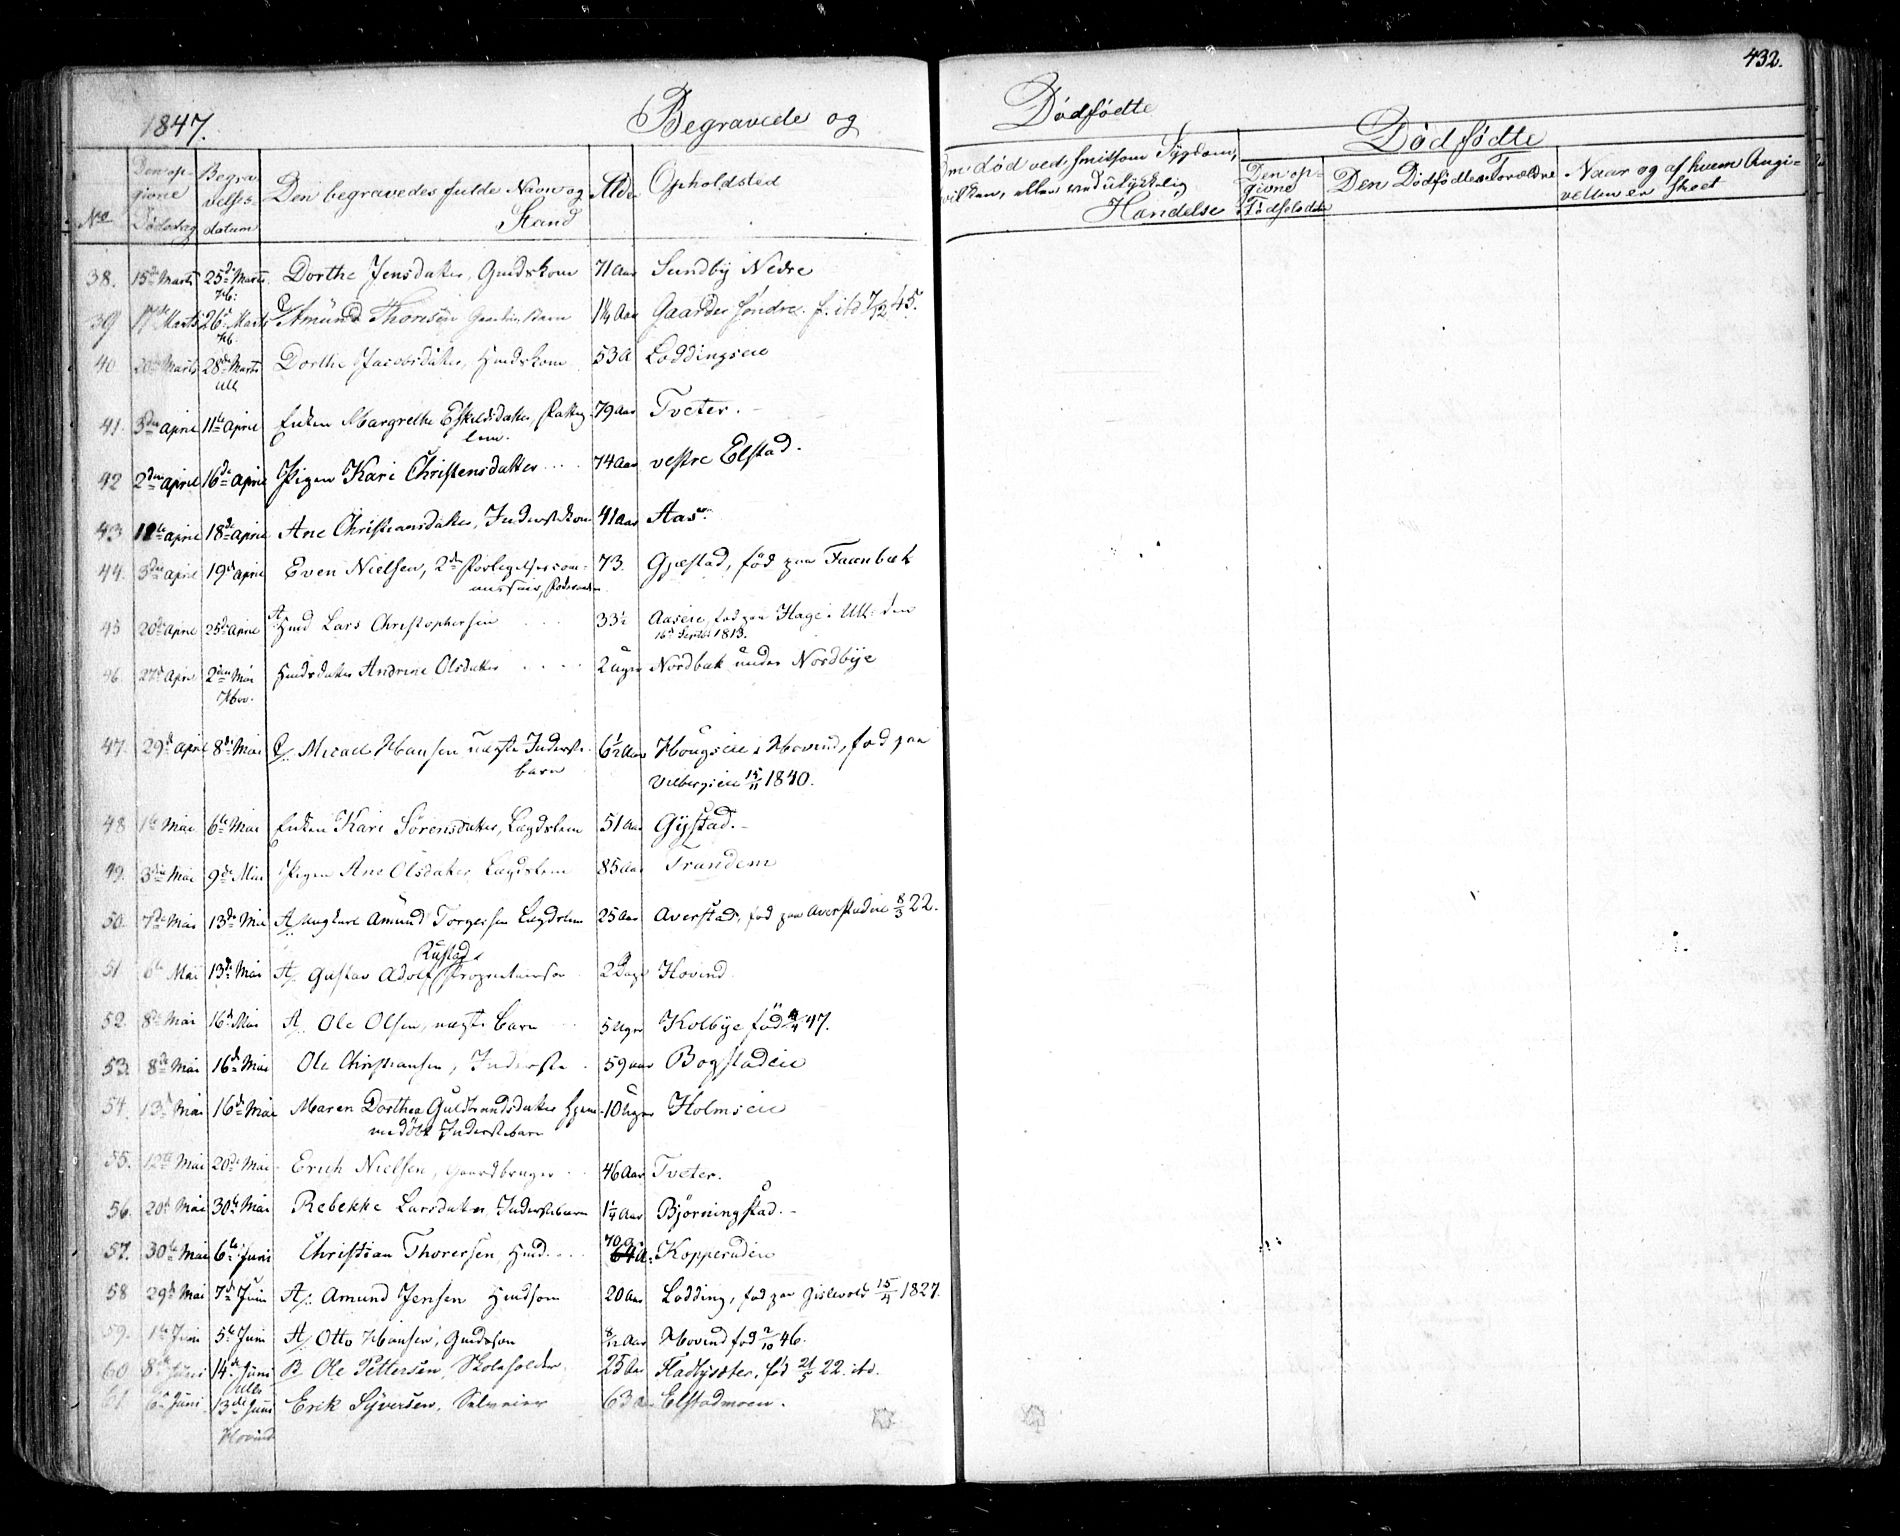 432.
1847.
Begravede og
Dødfødte
Dødfødte
No
Den op-
givne
Dødsdag
Begra-
velses-
datum
Den begravedes fulde Navn og
Stand
Alder
Opholdsted
om død ved smitsom Sygdom,
hvilken, eller ved ulykkelig
Hændelse
Den op-
givne
Fødselsdatum
Den Dødfødtes Forældre
Naar og af hvem Angi-
velsen er skeet
38. 15de Marts 25de Marts Dorthe Jensdatter, Gmdskone 71 Aar Sundby Nedre
39 17de Marts 26 Marts Amund Thoresen 1¼ Aar Gaarder søndre. f. ibd 7/12 45.
40 20de Marts 28de Marts Dorthe Jacobsdatter, Hmdskone 53 A Loddingseie
Ull
41. 3die April 11te April Enken Margrethe Eskildsdatter, 79 Aar Tveter.
lem.
42 2den April 16de April Pigen Kari Christensdatter 74 Aar vestre Elstad.
43 April 18de April Ane Christiansdatter, Inderstkone 41 Aar Aas
44. 3die April 19de April Even Nielsen, 2den Forligelsescom- 73. Gjestad, fød paa Faanbæk
missair,
45 20de April 25de April Hmd Lars Christophersen 33½ Aaseie, fød paa Hage i Ull: den
16de Septbr 1813.
46. 27de April 2den Mai Hmdsdatter Andrine Olsdatter 2 Uger Nordbæk under Nordbye
Hov.
47. 29de April 8de Mai Micael Hansen uægte Inderst- 6½ Aar Hougseie i Hovind, fød paa
barn
Vilbergseie 15/11 1840.
48 1te Mai 6te Mai Enken Kari Sörensdatter, Lægdslem 51 Aar Gystad.
49. 3die Mai 9de Mai Pigen Ane Olsdatter Lægdslem 85 Aar Trandem
50. 7de Mai 13de Mai A/. Ungkarl Amund Torgersen Lægdslem 25 Aar Averstad, fød paa Averstadeie 8/3 22.
Rustad
51 6te Mai 13de Mai A/. Gustav Adolf Proprietairsøn 2 Dage Hovind
52. 8de Mai 16de Mai A/. Ole Olsen, uægte barn 5 Uger Kolbye fød 4/4 47.
53. 8de Mai 16de Mai Ole Christiansen, Inderste 59 aar Bogstadeie
54. 13de Mai 16de Mai Maren Dorthea Guldbrandsdatter hjem- 10 Uger Holmseie
medöbt Inderstebarn
55. 12te Mai 20de Mai Erich Nielsen, Gaardbruger 46 Aar Tveter.
56. 20de Mai 30te Mai Rebekke Larsdatter Inderstebarn 1¼ Aar Bjørningstad.
57. 30te Mai 6te Juni Christian Thorersen Hmd. 70 a. 64 A. Kopperudeie
58 29de Mai 7de Juni A/. Amund Jensen Hmdsøn 20 Aar Lodding, fød paa Gislevold 15/4 1827.
59. 1te Juni 5te Juni A/. Otto Hansen, Gmdssøn 8/12 Aar Hovind fød 2/10 46.
60 8de Juni 14de Juni B Ole Pettersen, Skoleholder 25 Aar Fladbysæter, fød 21/5 22 ibd.
Ulls
61 6te Juni 13de Juni Erik Syversen, Selveier 63 A. Elstadmoen.
Hovind